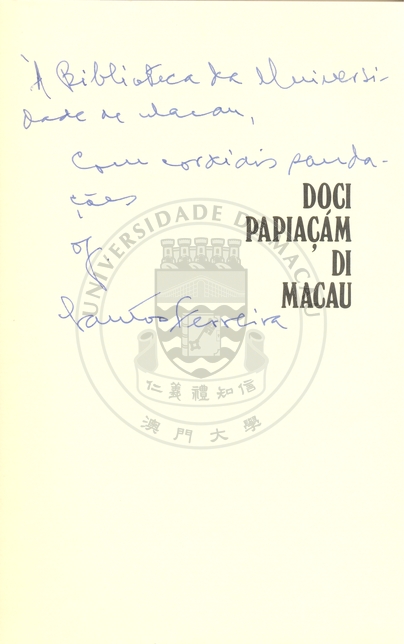 À Biblioteca da Universi-
dade de Macau,
Com cordiais sauda-
ções
of.
Santos Ferreira
DOCI
PAPIAÇÁM
DI
MACAU
UNIVERSIDADE DE MACAU
仁義禮知信
澳門大學